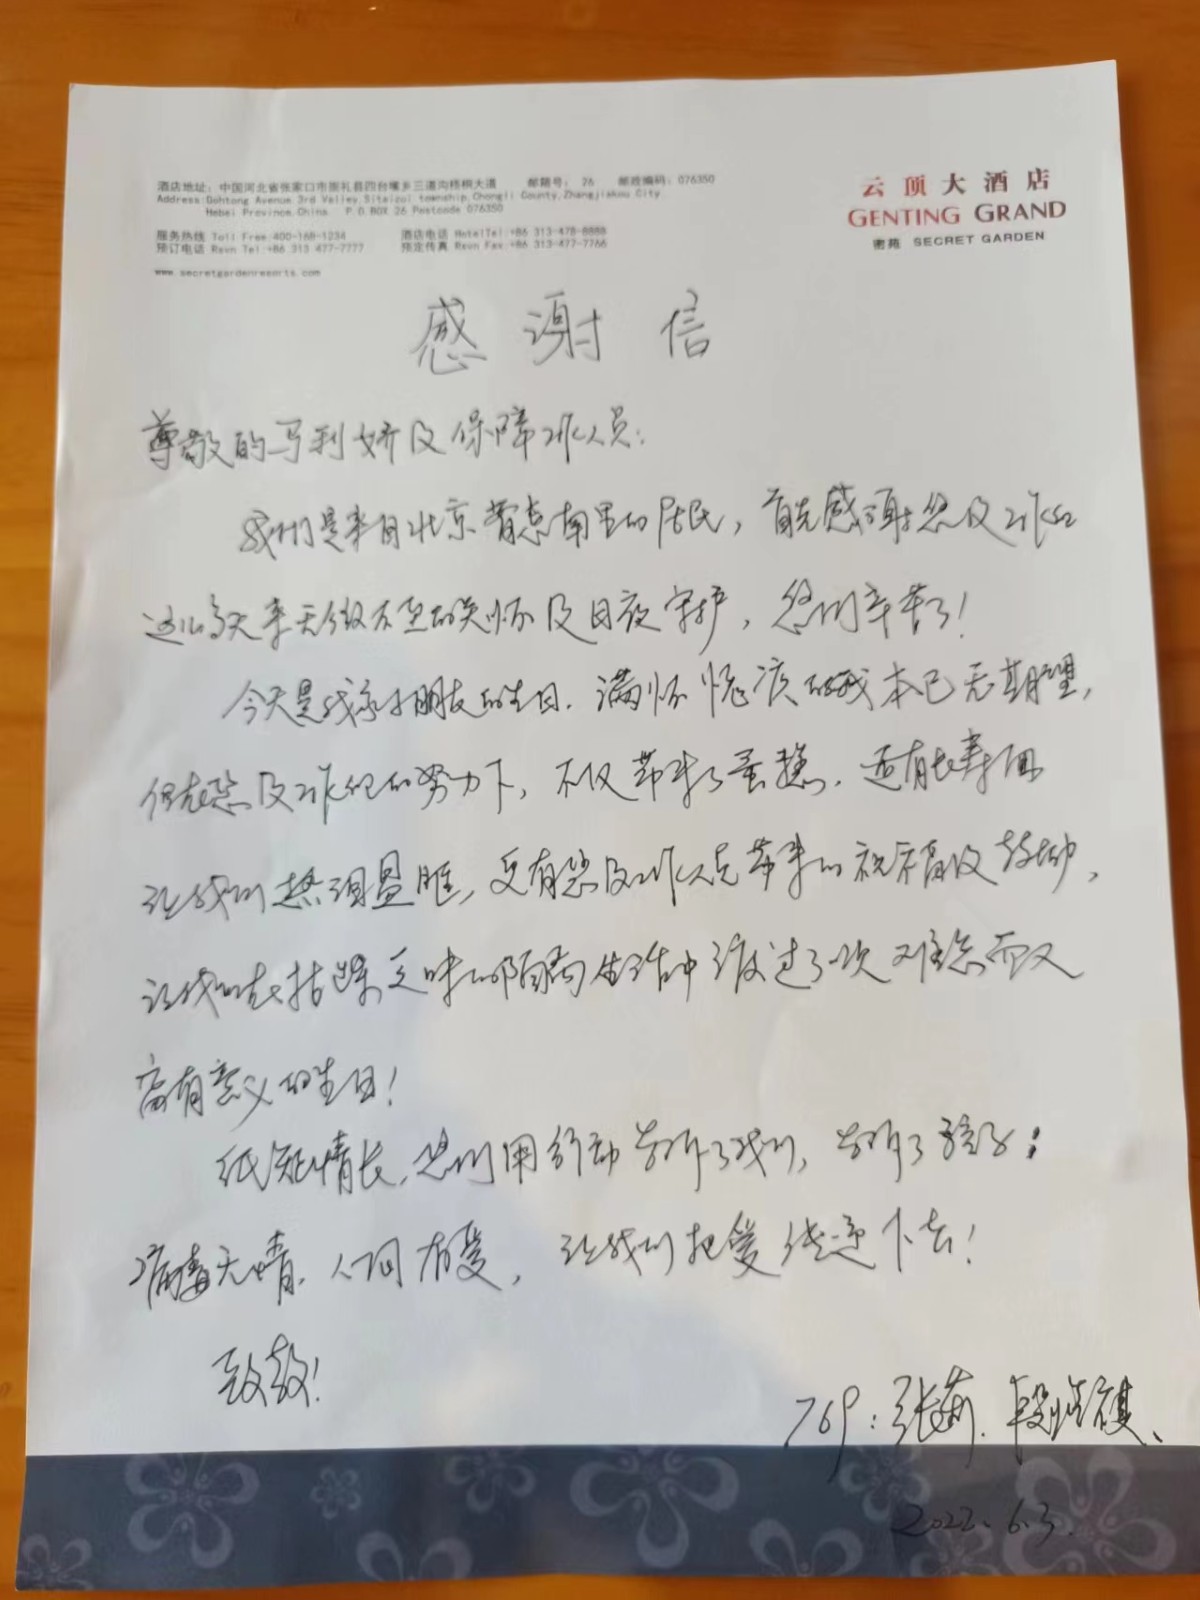 酒店地址：中国河北省张家口市崇礼县四台嘴乡三道沟梧桐大道 邮箱号：26 邮政编码：076350
Address:Gohtong Avenue 3rd Valley Sitaizui township, Chongli County, Zhangjiakou City
Hebei Province.China. P.O.BOX 26 Postcode 076350
服务热线 Toll Free:400-168-1234 酒店电话 HotelTel:+86 313-478-8888
预订电话 Rsvn Tel:+86 313 477-7777 预定传真 Rsvn Fax:+86 313-477-7766
www.secretgardenresorts.com
云顶大酒店
GENTING GRAND
密苑 SECRET GARDEN
感谢信
尊敬的马利娇及保障工作人员：
我们是来自北京管南里的居民，首先感谢您及工作组
这么多天来无微不至的关怀及日夜守护，您们辛苦了！
今天是我家小朋友的生日，满怀愧疚的我本已无期望，
但在您及工作组的努力下，不仅带来了蛋糕，还有长寿面
让我们热泪盈眶，更有您及工作人员带来的祝福及鼓励，
让我们在枯燥乏味的隔离生活中渡过了一次难忘而又
富有意义的生日！
纸短情长，您们用行动告诉了我们，告诉了孩子：
病毒无情，人间有爱，让我们把爱传递下去！
致敬！
769：张莉、段
2022.6.3.